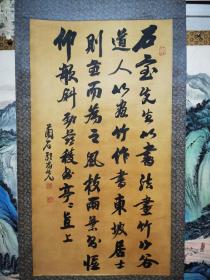 石室先生以書法畫竹山谷
道人以畫竹作書東坡居士
則兼而為之風枝雨葉則偃
仰欹斜勁莖疎節亭亭直上
蘭石郭尚先